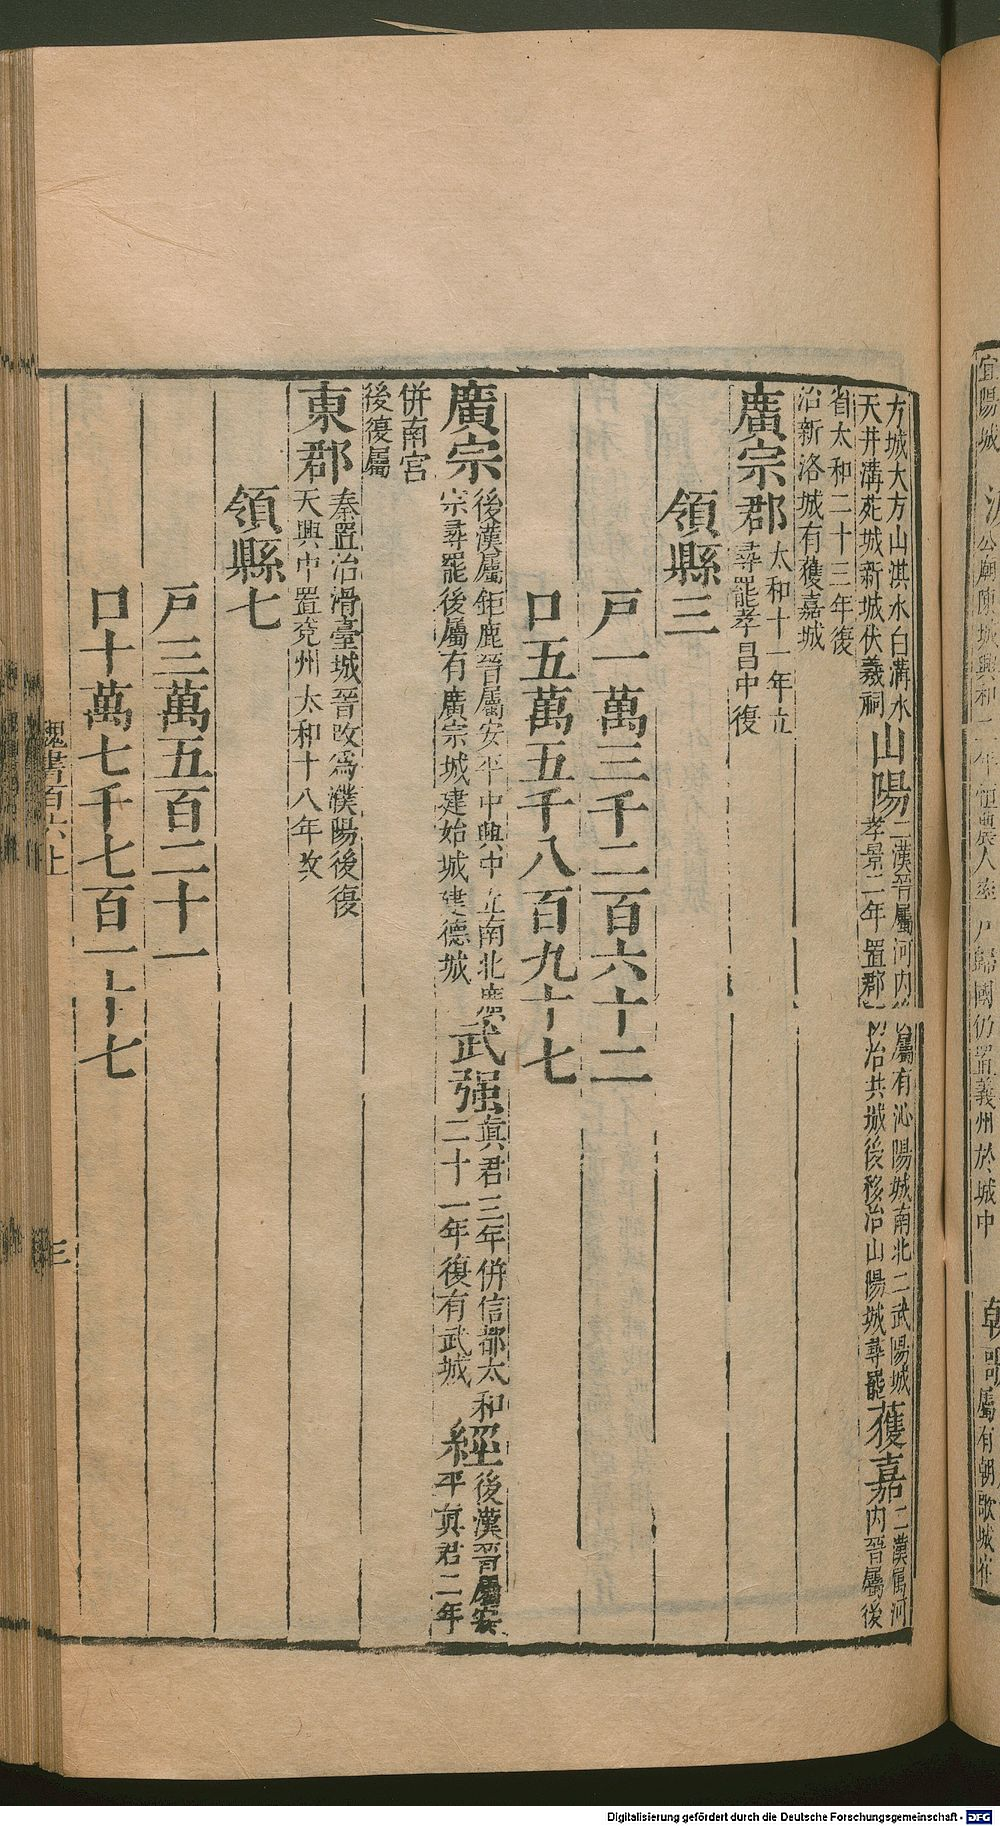 方城大方山淇水白溝水
天井溝苑城新城伏羲祠
山陽
二漢晉屬河内後屬有沁陽城南北二武陽城
孝景二年置郡治共城後移治山陽城尋罷
獲嘉
二漢属河
内晉屬後
省太和二十三年復
治新洛城有獲嘉城
廣宗郡
太和十一年立
尋罷孝昌中復
領縣三
戸一萬三千二百六十二
口五萬五千八百九十七
廣宗
後漢屬鉅鹿晉屬安平中興中立南北廣
宗尋罷後屬有廣宗城建始城建德城
武强
真君三年併信都太和
二十一年復有武城
經
後漢晉屬安
平真君二年
併南宫
後復屬
東郡
秦置治滑臺城晉改爲濮陽後復
天興中置兗州太和十八年改
領縣七
戸三萬五百二十一
口十萬七千七百一十七
魏書百六上
三
宜陽城
公廟陳城興和二年恒農人率戸歸國仍置義州於城中
朝歌
屬有朝歌城
Digitalisierung gefördert durch die Deutsche Forschungsgemeinschaft - DFG